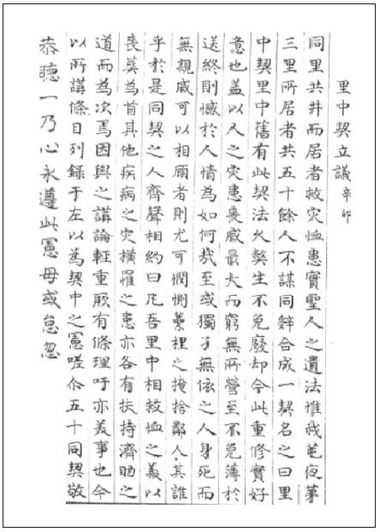 里中契立議 辛卯
同里共井而居者救灾恤患實聖人之遺法惟我芼夜茅
三里所居者共五十餘人不謀同辭合成一契名之曰里
中契里中舊有此契法久獘生不免廢却今此重修實好
意也盖以人之灾患喪戚最大而窮無所營至不免薄於
送終則憾於人情為如何哉至或獨孑無依之人身死而
無親戚可以相顧者則尤可憫惻虆梩之掩捨鄰人其誰
乎於是同契之人齊聲相約曰凡吾里中相救恤之義以
喪葬為首其他疾病之灾橫罹之患亦各有扶持濟賙之
道而為次焉因與之講論輕重厥有條理吁亦美事也今
以所講條目列録于左以為契中之憲嗟尒五十同契敬
恭聽一乃心永遵此憲毋或怠忽